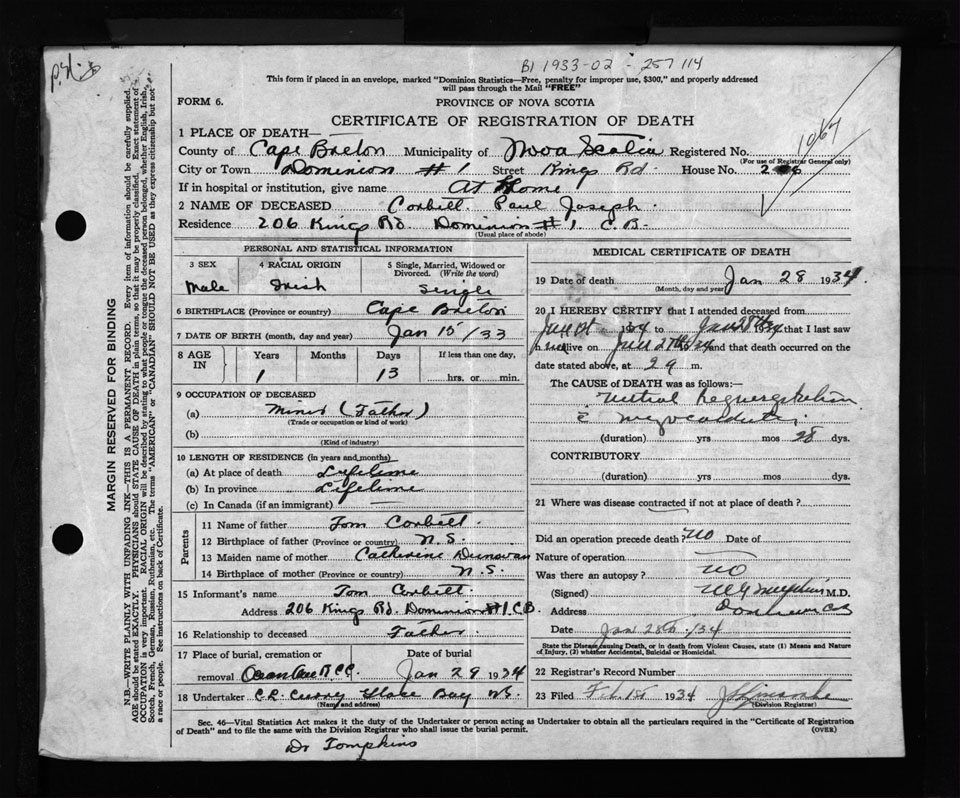 B1 1933-02 - 257114
This form if placed in an envelope, marked "Dominion Statistics—Free, penalty for improper use, $300," and properly addressed
will pass through the Mail "FREE"
FORM 6.
PROVINCE OF NOVA SCOTIA
CERTIFICATE OF REGISTRATION OF DEATH
1067
1 PLACE OF DEATH—
County of Cape Breton Municipality of Nova Scotia Registered No.
(For use of Registrar General only)
City or Town Dominion # 1 Street Kings Rd. House No. 206
If in hospital or institution, give name At Home
2 NAME OF DECEASED Corbett Paul Joseph.
Residence 206 Kings Rd. Dominion # 1. C.B.
(Usual place of abode)
PERSONAL AND STATISTICAL INFORMATION
3 SEX
Male
4 RACIAL ORIGIN
Irish
5 Single, Married, Widowed or
Divorced. (Write the word)
Single
6 BIRTHPLACE (Province or country) Cape Breton
7 DATE OF BIRTH (month, day and year) Jan 15/33
8 AGE IN
Years Months Days If less than one day,
1 13 hrs. or min.
9 OCCUPATION OF DECEASED
(a) Miner (Father)
(Trade or occupation or kind of work)
(b)
(Kind of industry)
10 LENGTH OF RESIDENCE (in years and months)
(a) At place of death Lifetime
(b) In province Lifetime
(c) In Canada (if an immigrant)
Parents
11 Name of father Tom Corbett.
12 Birthplace of father (Province or country) N.S.
13 Maiden name of mother Catherine Dunovan
14 Birthplace of mother (Province or country) N.S.
15 Informant's name Tom Corbett
Address 206 Kings Rd. Dominion #1. C.B.
16 Relationship to deceased Father.
17 Place of burial, cremation or Date of burial
removal Jan 29 1934
18 Undertaker C.R. Curry Glace Bay NS.
(Name and address)
MEDICAL CERTIFICATE OF DEATH
19 Date of death Jan 28 1934
(Month, day and year)
20 I HEREBY CERTIFY that I attended deceased from
1934 to Jan 28th 34 that I last saw
h alive on 27th 34 and that death occurred on the
date stated above, at 2 9 m.
The CAUSE of DEATH was as follows:—
Mitral Regurgitation
(duration) yrs mos 28 dys.
CONTRIBUTORY
(duration) yrs mos dys.
21 Where was disease contracted if not at place of death?
Did an operation precede death? NO Date of
Nature of operation
Was there an autopsy? NO
(Signed) M.D.
Address
Date Jan 28th /34
State the Disease causing Death, or in death from Violent Causes, state (1) Means and Nature
of Injury, (2) whether Accidental, Suicidal or Homicidal.
22 Registrar's Record Number
23 Filed 1934
(Division Registrar)
Sec. 46—Vital Statistics Act makes it the duty of the Undertaker or person acting as Undertaker to obtain all the particulars required in the "Certificate of Registration
of Death" and to file the same with the Division Registrar who shall issue the burial permit.
(OVER)
Dr Tompkins
MARGIN RESERVED FOR BINDING
N.B.—WRITE PLAINLY WITH UNFADING INK—THIS IS A PERMANENT RECORD. Every item of information should be carefully supplied.
AGE should be stated EXACTLY. PHYSICIANS should STATE CAUSE OF DEATH in plain terms, so that it may be properly classified. Exact statement of
OCCUPATION is very important. RACIAL ORIGIN will be described by stating to what people or race the deceased person belonged, whether English, Irish,
Scotch, French, German, Russian, Ruthenian, etc. The terms "AMERICAN" or "CANADIAN" SHOULD NOT BE USED as they express citizenship but not
a race or people. See instructions on back of Certificate.